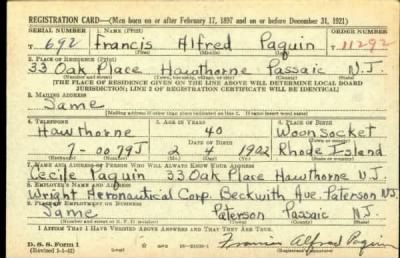 REGISTRATION CARD—(Men born on or after February 17, 1897 and on or before December 31, 1921)
SERIAL NUMBER 1. NAME (Print) ORDER NUMBER
T 692 Francis Alfred Paquin T 11292
(First) (Middle) (Last)
2. PLACE OF RESIDENCE (Print)
33 Oak Place Hawthorne Passaic N.J.
(Number and street) (Town, township, village, or city) (County) (State)
[THE PLACE OF RESIDENCE GIVEN ON THE LINE ABOVE WILL DETERMINE LOCAL BOARD
JURISDICTION; LINE 2 OF REGISTRATION CERTIFICATE WILL BE IDENTICAL]
3. MAILING ADDRESS
Same
[Mailing address if other than place indicated on line 2. If same insert word same]
4. TELEPHONE 5. AGE IN YEARS 6. PLACE OF BIRTH
Hawthorne 40 Woonsocket
DATE OF BIRTH
7-0079J 2 4 1902 Rhode Island
7. NAME AND ADDRESS OF PERSON WHO WILL ALWAYS KNOW YOUR ADDRESS
Cecile Paquin 33 Oak Place Hawthorne N.J.
8. EMPLOYER'S NAME AND ADDRESS
Wright Aeronautical Corp. Beckwith Ave. Paterson NJ
9. PLACE OF EMPLOYMENT OR BUSINESS
Same Paterson Passaic N.J.
I AFFIRM THAT I HAVE VERIFIED ABOVE ANSWERS AND THAT THEY ARE TRUE.
D. S. S. Form 1
(Revised 1-4-42) (over) Francis Alfred Paquin